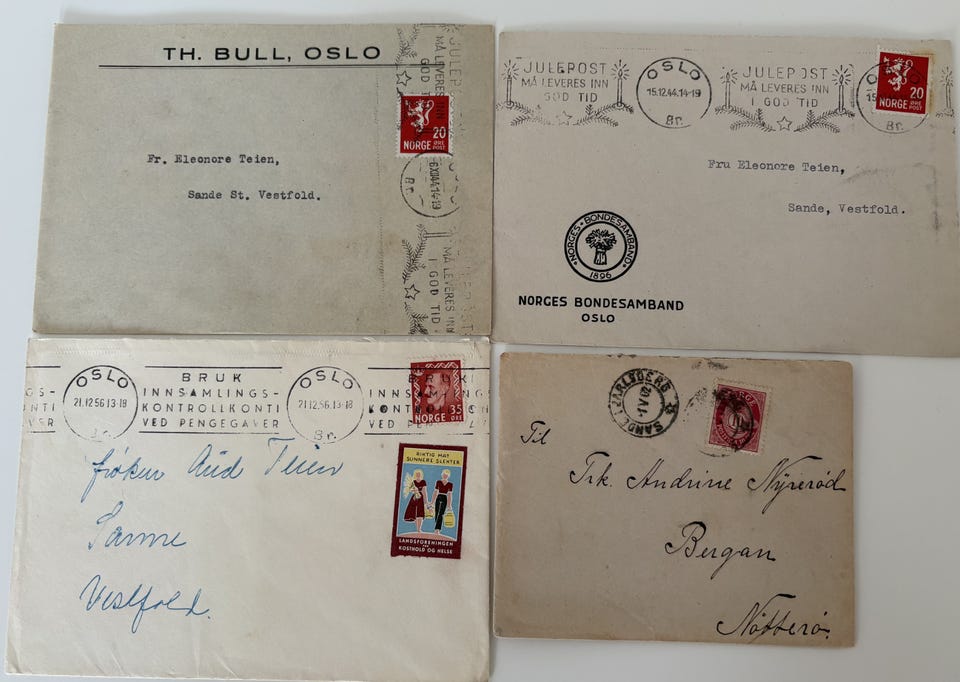 TH. BULL, OSLO
JULEP
MÅ LEVERES INN
GOD TID
20
NORGE ØRE
POST
Br.
MÅ LEVERES INN
I GOD TID
Fr. Eleonore Teien,
Sande St. Vestfold.
JULEPOST
MÅ LEVERES INN
GOD TID
OSLO
15.12.44.14-19
Br.
JULEPOST
MÅ LEVERES INN
I GOD TID
20
NORGE ØRE
POST
Br.
Fru Eleonore Teien,
Sande, Vestfold.
NORGES BONDESAMBAND
1896
NORGES BONDESAMBAND
OSLO
OSLO
21.12.56.13-18
BRUK
INNSAMLINGS-
KONTROLLKONTI
VED PENGEGAVER
OSLO
21.12.56.13-18
Br.
35
NORGE ØRE
frøken Aud Teien
Vestfold.
RIKTIG MAT
SUNNERE SLEKTER
LANDSFORENINGEN
KOSTHOLD OG HELSE
SANDE I JARLSBERG
Til
Frk. Andrine Nyrerød
Bergan
Nøtterø.